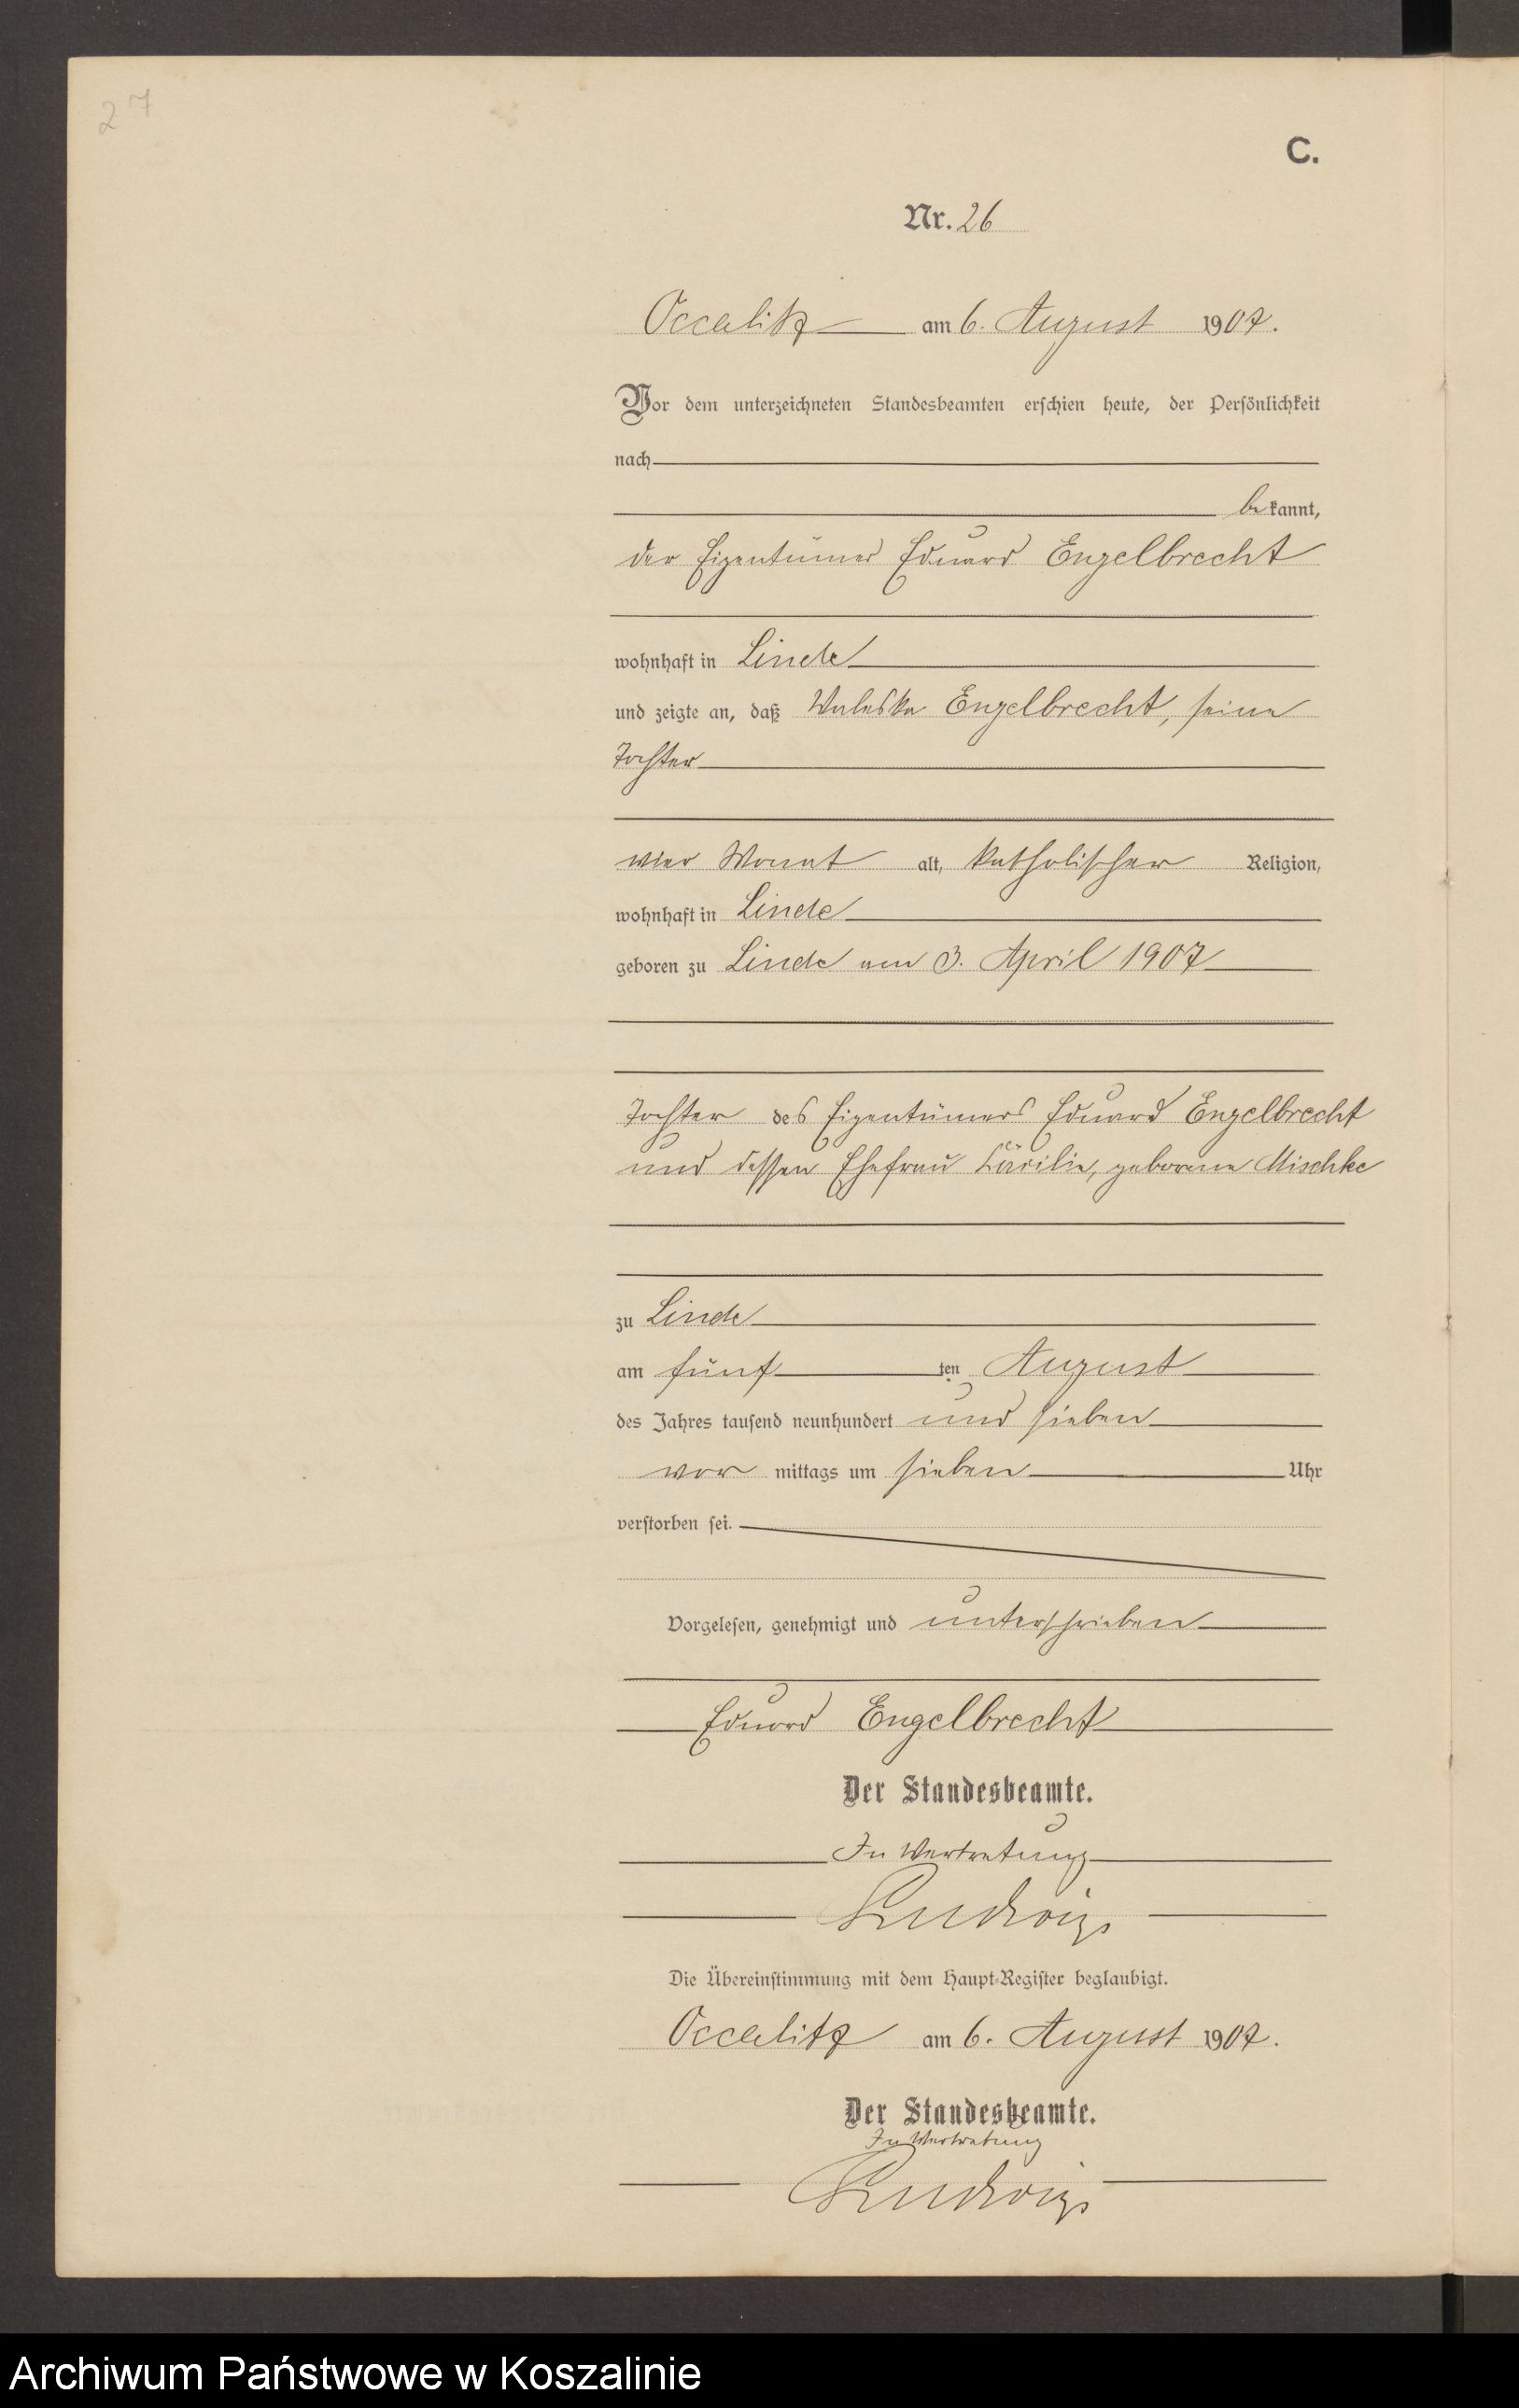 27
C.
Nr. 26
Occalitz am 6. August 1907.
Vor dem unterzeichneten Standesbeamten erschien heute, der Persönlichkeit
nach
bekannt,
der Eigentümer Eduard Engelbrecht
wohnhaft in Linde
und zeigte an, daß Waleska Engelbrecht, seine
Tochter
vier Monat alt, katholischer Religion,
wohnhaft in Linde
geboren zu Linde am 3. April 1907
Tochter des Eigentümers Eduard Engelbrecht
und dessen Ehefrau Cäcilie, geborene Mischke
zu Linde
am fünften August
des Jahres tausend neunhundert und sieben
vor mittags um sieben Uhr
verstorben sei.
Vorgelesen, genehmigt und unterschrieben
Eduard Engelbrecht
Der Standesbeamte.
In Vertretung
Ludwig
Die Übereinstimmung mit dem Haupt-Register beglaubigt.
Occalitz am 6. August 1907.
Der Standesbeamte.
In Vertretung
Ludwig
Archiwum Państwowe w Koszalinie